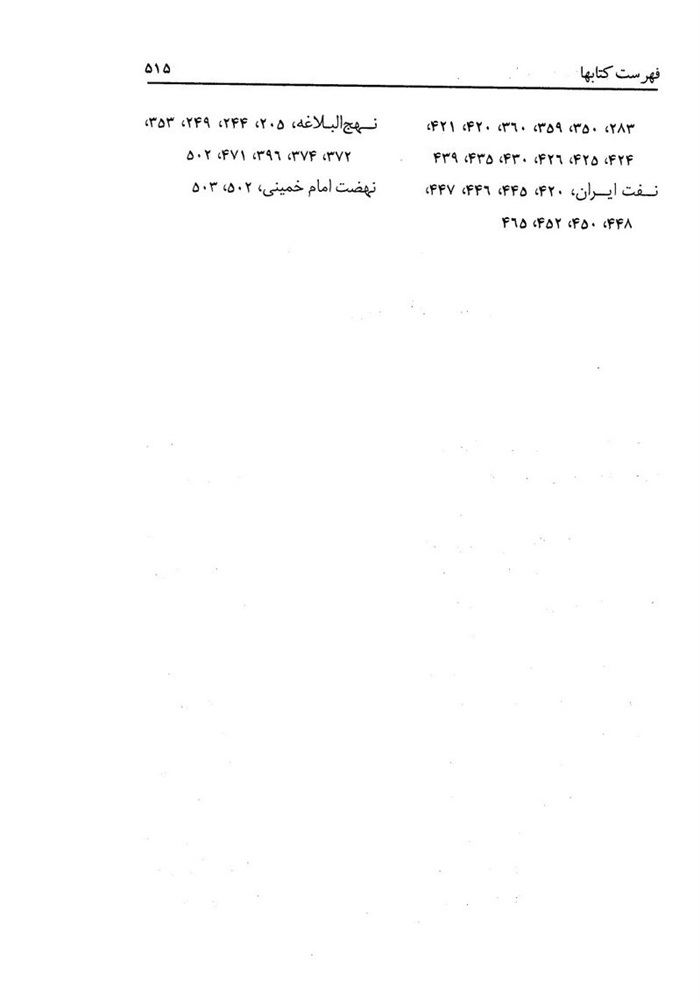 فهرست کتابها ۵۱۵
۲۸۳، ۳۵۰، ۳۵۹، ۳۶۰، ۴۲۰، ۴۲۱،
۴۲۴، ۴۲۵، ۴۲۶، ۴۳۰، ۴۳۵، ۴۳۹
نـفت ایـران، ۴۲۰، ۴۴۵، ۴۴۶، ۴۴۷،
۴۴۸، ۴۵۰، ۴۵۲، ۴۶۵
نـهج‌البـلاغه، ۲۰۵، ۲۴۴، ۲۴۹، ۳۵۳،
۳۷۲، ۳۷۴، ۳۹۶، ۴۷۱، ۵۰۲
نهضت امام خمینی، ۵۰۲، ۵۰۳